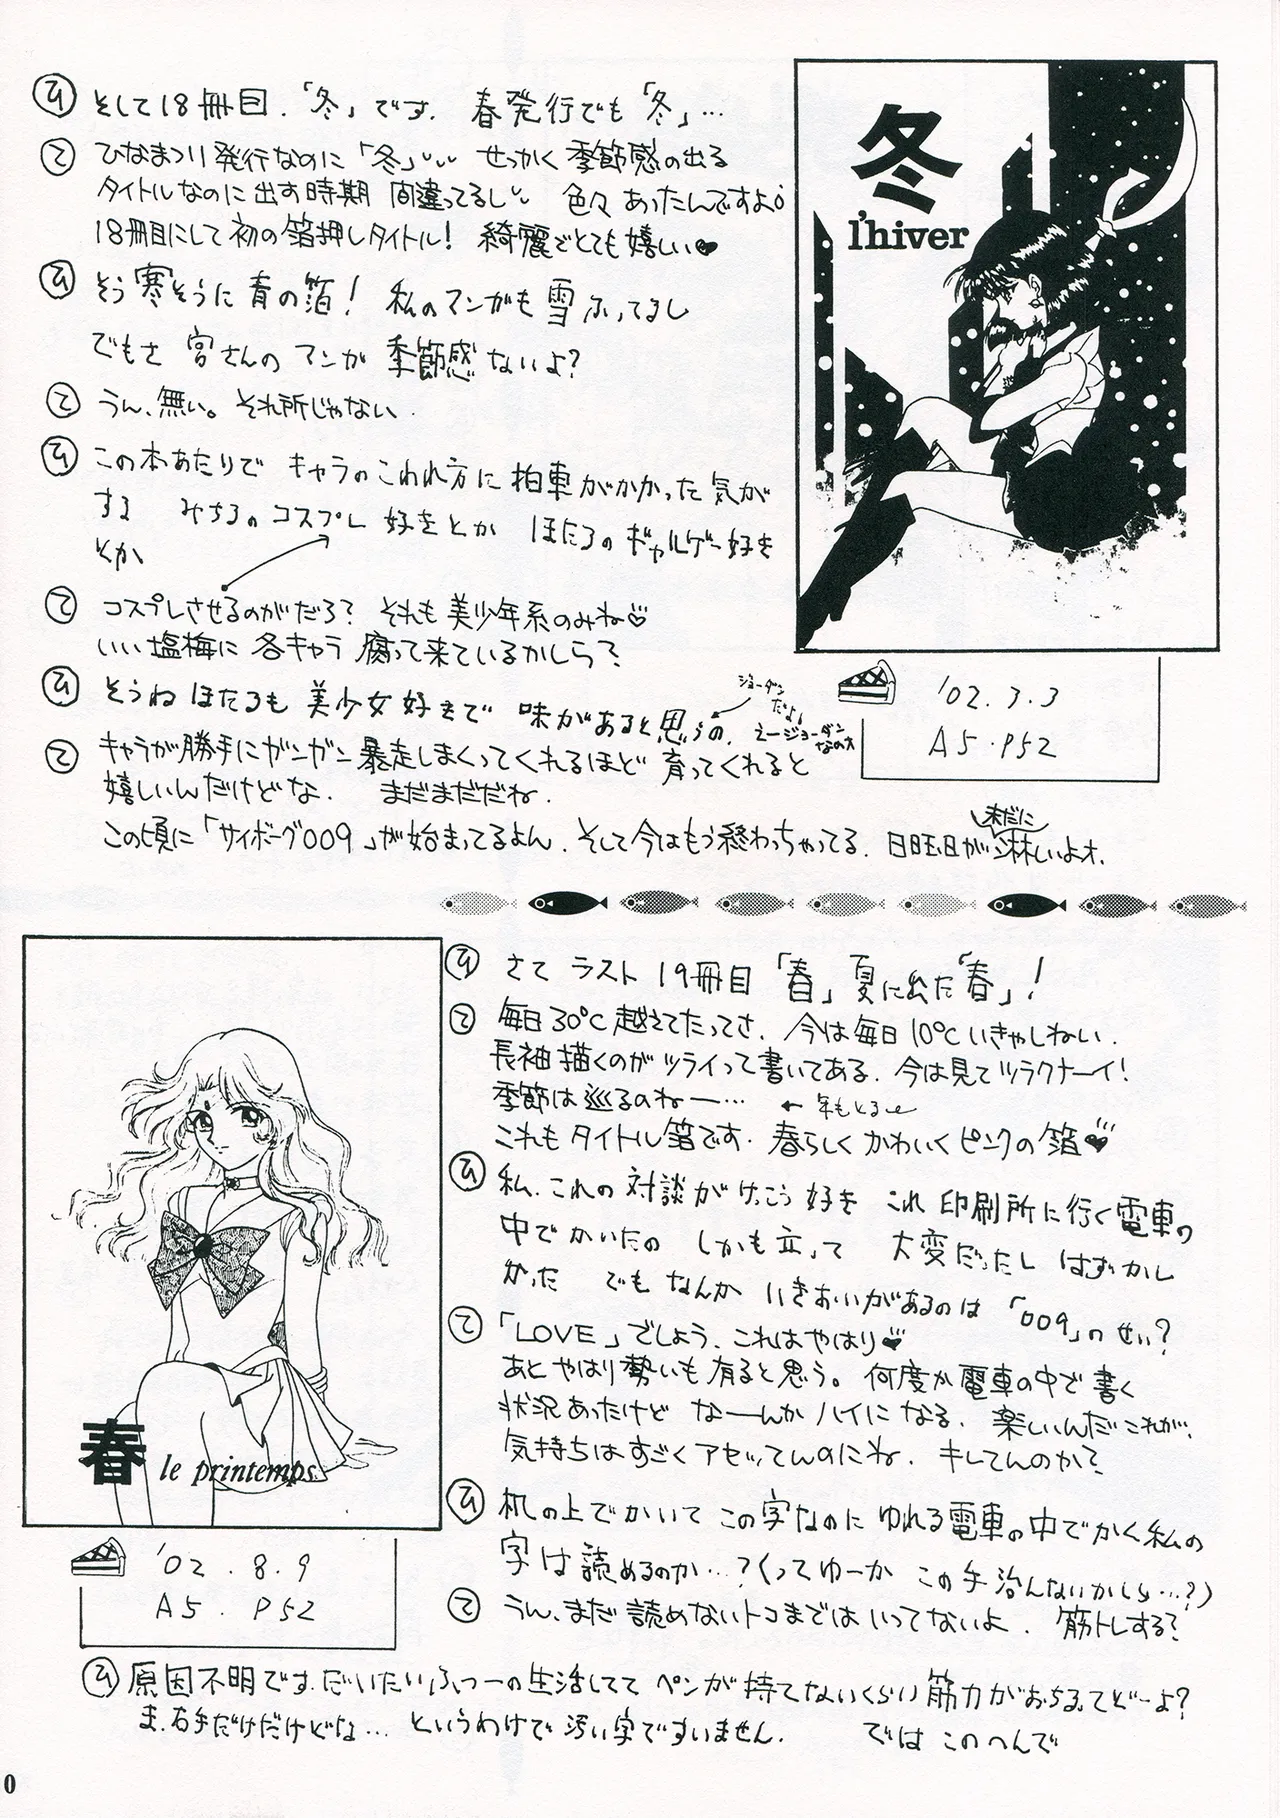 ひ そして18冊目.「冬」です. 春発行でも「冬」…
て ひなまつり発行なのに「冬」 せっかく季節感の出る
タイトルなのに出す時期 間違ってるし 色々あったんですよ
18冊目にして初の箔押しタイトル! 綺麗でとても嬉しい♥
ひ そう寒そうに青の箔! 私のマンガも雪ふってるし
でもさ 宮さんのマンガ 季節感ないよ?
て うん、無い。それ所じゃない.
ひ この本あたりで キャラのこわれ方に拍車がかかった気が
する みちるのコスプレ好きとか ほたるのギャルゲー好き
とか
て コスプレさせるのがだろ? それも美少年系のみね♡
いい塩梅に各キャラ腐って来ているかしら?
ひ そうねほたるも 美少女好きで 味があると思うの.
ジョーダン
だよ!
えージョーダン
なの
て キャラが勝手にガンガン暴走しまくってくれるほど 育ってくれると
嬉しいんだけどな. まだまだだね.
この頃に「サイボーグ009」が始まってるよん. そして今はもう終わっちゃってる. 日曜日が淋しいよオ.
未だに
冬
l'hiver
'02.3.3
A5・P52
ひ さて ラスト 19冊目「春」夏に出た「春」!
て 毎日30℃越えてたってさ. 今は毎日10℃いきゃしねい.
長袖描くのがツライって書いてある. 今は見てツラクナーイ!
季節は巡るのねー… ← 年もとる
これもタイトル箔です. 春らしくかわいくピンクの箔♥
ひ 私、これの対談がけっこう好き これ印刷所に行く電車の
中でかいたの しかも立って 大変だったし はずかし
かった でもなんか いきおいがあるのは「009」のせい?
て 「LOVE」でしょう. これはやはり♥
あとやはり勢いも有ると思う。何度か電車の中で書く
状況あったけど なーんかハイになる. 楽しいんだこれが.
気持ちはすごくアセッてんのにね. キレてんのか?
ひ 机の上でかいて この字なのに ゆれる電車の中でかく私の
字は読めるのか…?(ってゆーか この手治んないかしら…?)
て うん、まだ読めないトコまではいってないよ. 筋トレする?
春 le printemps
'02.8.9
A5.P52
ひ 原因不明です.だいたいふつーの生活してて ペンが持てないくらい筋力がおちるってどーよ?
ま、右手だけだけどな… というわけで汚い字ですいません. では このへんで
0